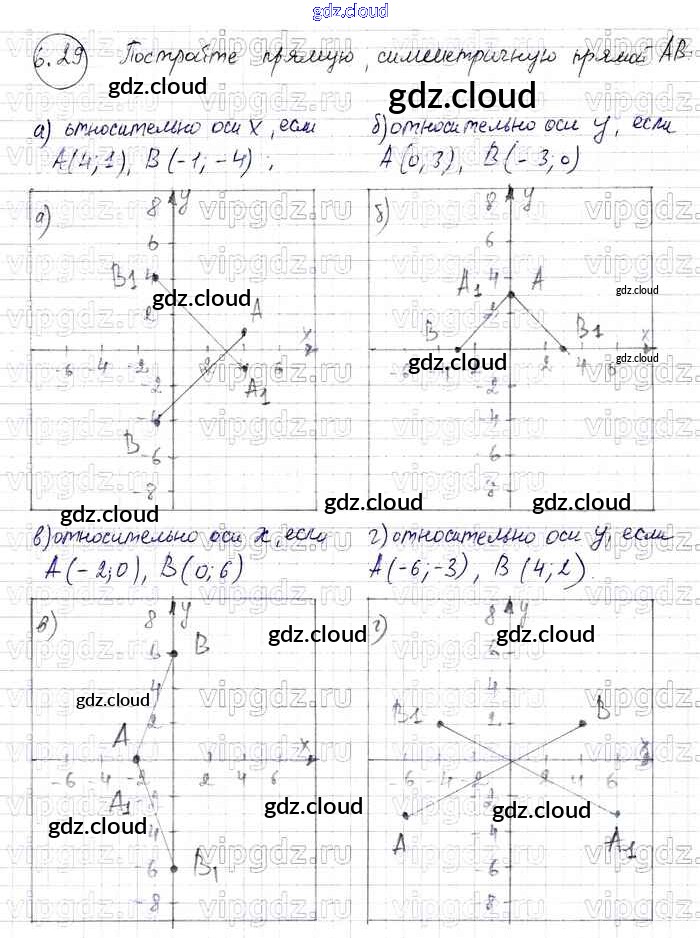 gdz.cloud
6.29 Постройте прямую, симметричную прямой AB
gdz.cloud
gdz.cloud
а) относительно оси x, если
б) относительно оси y, если
A(4;1), B(-1;-4);
A(0;3), B(-3;0)
vipgdz.ru vipgdz.ru vipgdz.ru
а) 8 y
б) 8 y
6
6
B1 4
4
gdz.cloud
gdz.cloud
A
A1 A
2
B
B1
x
x
gdz.cloud
gdz.cloud
-6 -4 -2 2 6
-6 2 4 6
A1
-2
-2
B -4
-4
-6
-6
-8
-8
gdz.cloud
gdz.cloud
gdz.cloud
в) относительно оси x, если
г) относительно оси y, если
A(-2;0), B(0;6)
A(-6;-3), B(4;2).
в) 8 y
г) 8 y
gdz.cloud
gdz.cloud
6 B
6
gdz.cloud
4
4
B1 2 B
A 2
x
x
-6 -4 -2 2 4 6
-6 -4 -2 2 4 6
A1
gdz.cloud
gdz.cloud
gdz.cloud
-4
A
A1
-6 B1
-6
-8
-8